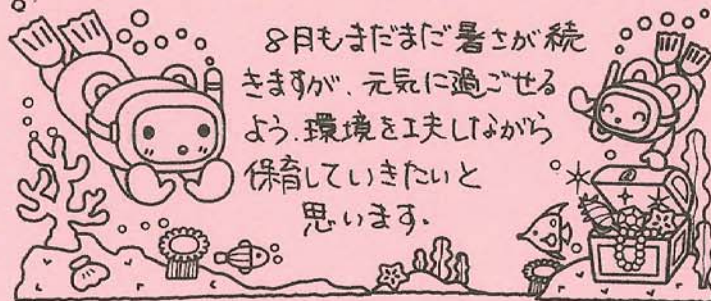 8月もまだまだ暑さが続
きますが、元気に過ごせる
よう、環境を工夫しながら
保育していきたいと
思います。